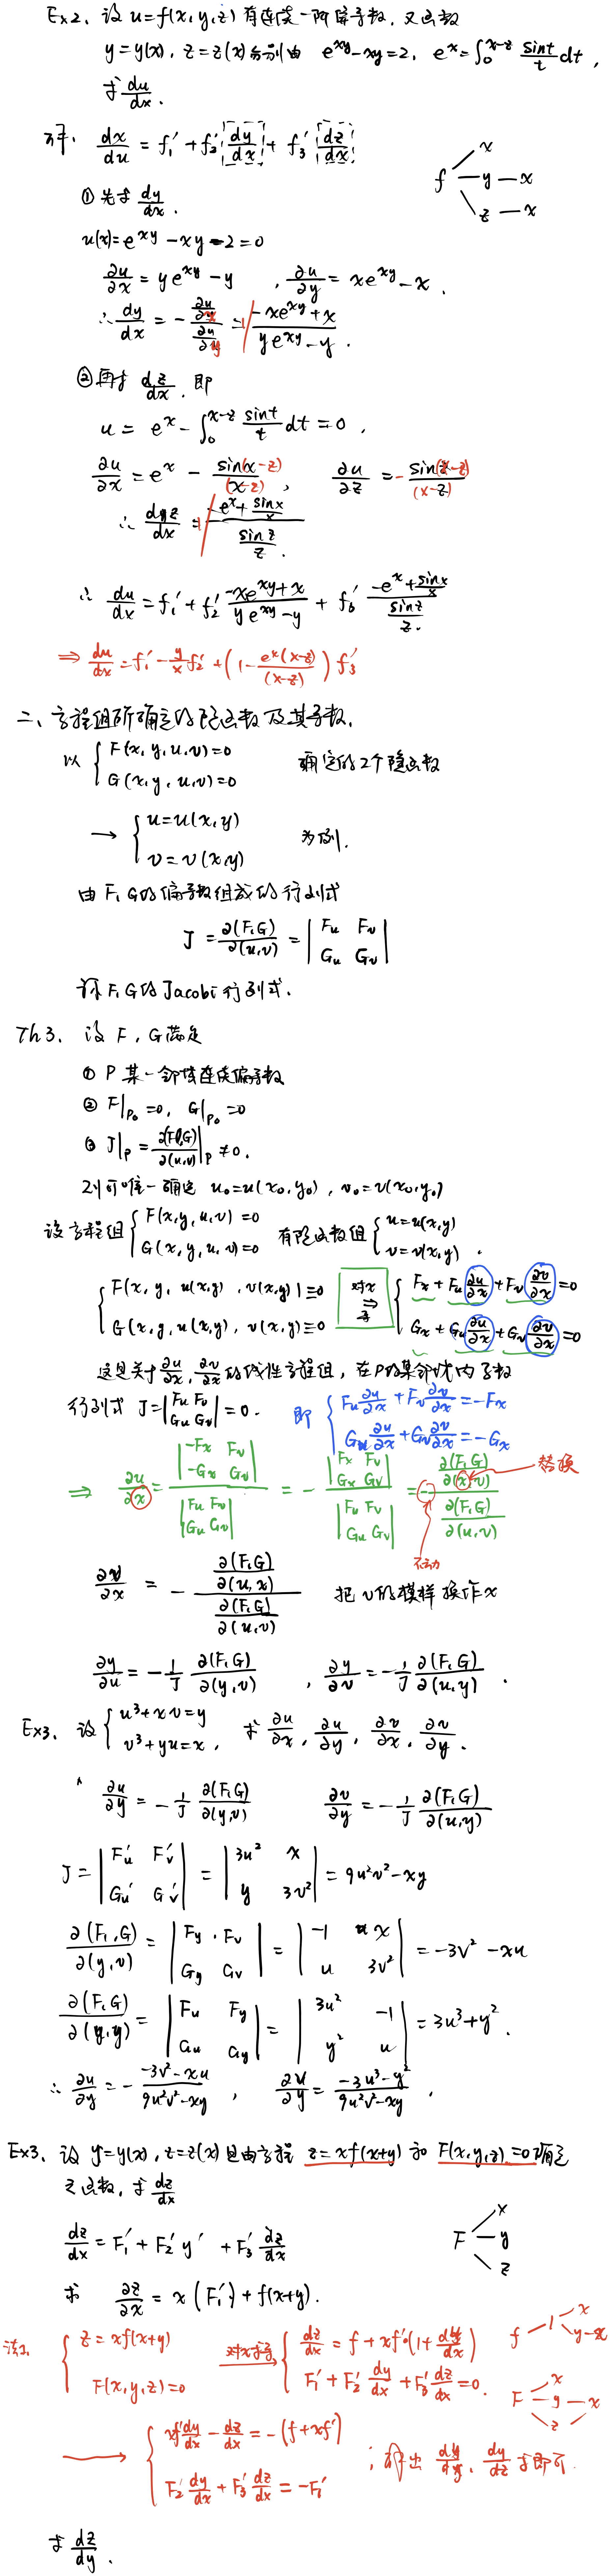 Ex2. 设 u=f(x,y,z) 有连续一阶偏导数, 又函数
y=y(x), z=z(x) 分别由 e^{xy}-xy=2, e^x=∫_0^{x-z} \frac{sint}{t}dt,
求 \frac{du}{dx}.
解. \frac{dx}{du} = f_1' + f_2' \frac{dy}{dx} + f_3' \frac{dz}{dx}
f x y — x z — x
① 先求 \frac{dy}{dx}.
u(x)=e^{xy}-xy-2=0
\frac{∂u}{∂x} = ye^{xy}-y, \frac{∂u}{∂y} = xe^{xy}-x.
∴ \frac{dy}{dx} = -\frac{\frac{∂u}{∂x}}{\frac{∂u}{∂y}} = \frac{-xe^{xy}+x}{ye^{xy}-y}.
② 再求 \frac{dz}{dx}. 即
u = e^x - ∫_0^{x-z} \frac{sint}{t}dt = 0,
\frac{∂u}{∂x} = e^x - \frac{sin(x-z)}{(x-z)}, \frac{∂u}{∂z} = -\frac{sin(x-z)}{(x-z)}
∴ \frac{dz}{dx} = \frac{-e^x+\frac{sinx}{x}}{\frac{sinz}{z}}.
∴ \frac{du}{dx} = f_1' + f_2' \frac{-xe^{xy}+x}{ye^{xy}-y} + f_3' \frac{-e^x+\frac{sinx}{x}}{\frac{sinz}{z}}.
⇒ \frac{du}{dx} = f_1' - \frac{y}{x}f_2' + (1-\frac{e^x(x-z)}{(x-z)}) f_3'
二、方程组所确定的隐函数及其导数.
以 { F(x,y,u,v)=0 确定的2个隐函数
G(x,y,u,v)=0
→ { u=u(x,y) 为例.
v=v(x,y)
由 F, G的偏导数组成的行列式
J = \frac{∂(F,G)}{∂(u,v)} = | F_u F_v ; G_u G_v |
称 F, G的 Jacobi 行列式.
Th3. 设 F, G满足
① P 某一邻域连续偏导数
② F|_{P_0}=0, G|_{P_0}=0
③ J|_P = \frac{∂(F,G)}{∂(u,v)}|_P ≠0.
则可唯一确定 u_0=u(x_0,y_0), v_0=v(x_0,y_0)
设方程组 { F(x,y,u,v)=0 ; G(x,y,u,v)=0 有隐函数组 { u=u(x,y) ; v=v(x,y).
{ F(x,y,u(x,y),v(x,y))≡0 对x ⇒ 导 { F_x+F_u\frac{∂u}{∂x}+F_v\frac{∂v}{∂x}=0
G(x,y,u(x,y),v(x,y))≡0 G_x+G_u\frac{∂u}{∂x}+G_v\frac{∂v}{∂x}=0
这是关于 \frac{∂u}{∂x}, \frac{∂v}{∂x} 的线性方程组, 在P的某邻域内系数
行列式 J=| F_u F_v ; G_u G_v |=0. 即 { F_u\frac{∂u}{∂x}+F_v\frac{∂v}{∂x}=-F_x ; G_u\frac{∂u}{∂x}+G_v\frac{∂v}{∂x}=-G_x
⇒ \frac{∂u}{∂x} = \frac{| -F_x F_v ; -G_x G_v |}{| F_u F_v ; G_u G_v |} = -\frac{| F_x F_v ; G_x G_v |}{| F_u F_v ; G_u G_v |} = -\frac{\frac{∂(F,G)}{∂(x,v)}}{\frac{∂(F,G)}{∂(u,v)}} 替换
不动
\frac{∂v}{∂x} = -\frac{\frac{∂(F,G)}{∂(u,x)}}{\frac{∂(F,G)}{∂(u,v)}} 把v的模样换作x
\frac{∂y}{∂u} = -\frac{1}{J}\frac{∂(F,G)}{∂(y,v)}, \frac{∂y}{∂v} = -\frac{1}{J}\frac{∂(F,G)}{∂(u,y)}.
Ex3. 设 { u^3+xv=y ; v^3+yu=x, 求 \frac{∂u}{∂x}, \frac{∂u}{∂y}, \frac{∂v}{∂x}, \frac{∂v}{∂y}.
\frac{∂u}{∂y} = -\frac{1}{J}\frac{∂(F,G)}{∂(y,v)} \frac{∂v}{∂y} = -\frac{1}{J}\frac{∂(F,G)}{∂(u,y)}
J = | F_u' F_v' ; G_u' G_v' | = | 3u^2 x ; y 3v^2 | = 9u^2v^2-xy
\frac{∂(F,G)}{∂(y,v)} = | F_y F_v ; G_y G_v | = | -1 x ; u 3v^2 | = -3v^2-xu
\frac{∂(F,G)}{∂(y,y)} = | F_u F_y ; G_u G_y | = | 3u^2 -1 ; y^2 u | = 3u^3+y^2.
∴ \frac{∂u}{∂y} = -\frac{-3v^2-xu}{9u^2v^2-xy}, \frac{∂v}{∂y} = \frac{-3u^3-y^2}{9u^2v^2-xy},
Ex3. 设 y=y(x), z=z(x) 是由方程 z=xf(x+y) 和 F(x,y,z)=0确定
之函数, 求 \frac{dz}{dx}
\frac{dz}{dx} = F_1' + F_2' y' + F_3' \frac{dz}{dx}
F x y z
求 \frac{∂z}{∂x} = x(F_1')+f(x+y).
法1. { z=xf(x+y) 对x求导 → { \frac{dz}{dx} = f+xf'(1+\frac{dy}{dx})
F(x,y,z)=0 F_1'+F_2'\frac{dy}{dx}+F_3'\frac{dz}{dx}=0.
f — 1 x y—x
F x y — x z
→ { xf'\frac{dy}{dx}-\frac{dz}{dx}=-(f+xf')
F_2'\frac{dy}{dx}+F_3'\frac{dz}{dx}=-F_1'
求 \frac{dz}{dy}.